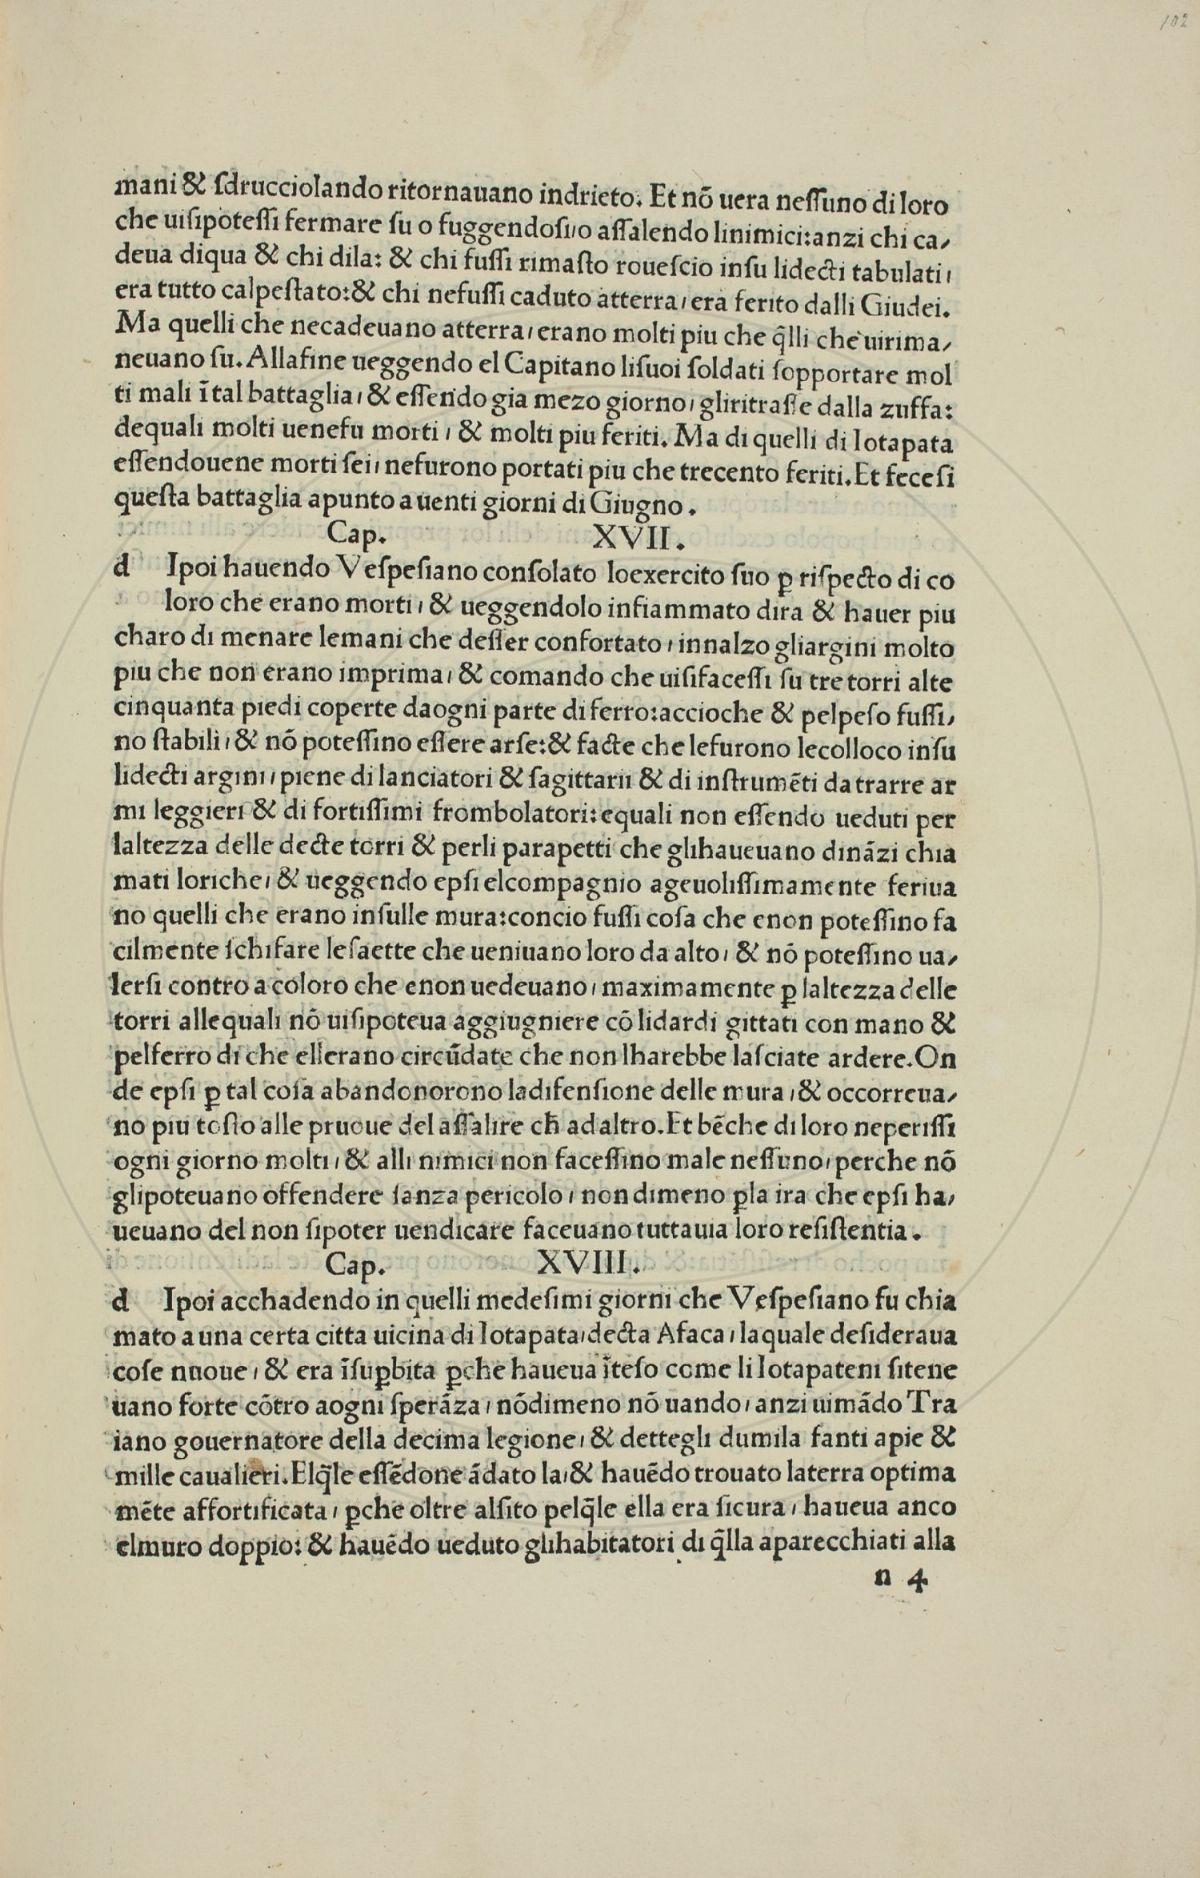 102
mani & ſdrucciolando ritornauano indrieto. Et nõ uera neſſuno di loro
che uiſipoteſſi fermare ſu o fuggendoſi/o aſſalendo linimici:anzi chi ca/
deua diqua & chi dila: & chi fuſſi rimaſto roueſcio inſu lidecti tabulati/
era tutto calpeſtato:& chi nefuſſi caduto atterra/era ferito dalli Giudei.
Ma quelli che necadeuano atterra/erano molti piu che q̃lli che uirima/
neuano ſu. Allafine ueggendo el Capitano liſuoi ſoldati ſopportare mol
ti mali ĩ tal battaglia/& eſſendo gia mezo giorno/gliritraſſe dalla zuffa:
dequali molti uenefu morti / & molti piu feriti. Ma di quelli di Iotapata
eſſendouene morti ſei/nefurono portati piu che trecento feriti. Et feceſi
queſta battaglia apunto a uenti giorni di Giugno.
Cap. XVII.
d Ipoi hauendo Veſpeſiano conſolato loexercito ſuo ꝑ riſpecto di co
loro che erano morti/& ueggendolo infiammato dira & hauer piu
charo di menare lemani che deſſer confortato/innalzo gliargini molto
piu che non erano imprima/& comando che uiſifaceſſi ſu tre torri alte
cinquanta piedi coperte daogni parte di ferro:accioche & pelpeſo fuſſi/
no ſtabili/& nõ poteſſino eſſere arſe:& facte che lefurono lecolloco inſu
lidecti argini/piene di lanciatori & ſagittarii & di inſtrumẽti da trarre ar
mi leggieri & di fortiſſimi frombolatori:equali non eſſendo ueduti per
laltezza delle decte torri & perli parapetti che glihaueuano dinãzi chia
mati loriche/& ueggendo epſi elcompagnio ageuoliſſimamente feriua
no quelli che erano inſulle mura:concio fuſſi coſa che enon poteſſino fa
cilmente ſchifare leſaette che ueniuano loro da alto/& nõ poteſſino ua/
lerſi contro a coloro che enon uedeuano/maximamente ꝑ laltezza delle
torri allequali nõ uiſipoteua aggiugniere cõ lidardi gittati con mano &
pelferro di che ellerano circũdate che non lharebbe laſciate ardere. On
de epſi ꝑ tal coſa abandonorono ladifenſione delle mura/& occorreua/
no piu toſto alle pruoue del aſſalire ch̃ ad altro. Et bẽche di loro neperiſſi
ogni giorno molti/& alli nimici non faceſſino male neſſuno/perche nõ
glipoteuano offendere ſanza pericolo/non dimeno ꝑla ira che epſi ha/
ueuano del non ſipoter uendicare faceuano tuttauia loro reſiſtentia.
Cap. XVIII.
d Ipoi acchadendo in quelli medeſimi giorni che Veſpeſiano fu chia
mato a una certa citta uicina di Iotapata/decta Afaca/laquale deſideraua
coſe nuoue/& era ĩſuꝑbita ꝑche haueua ĩteſo come li Iotapateni ſitene
uano forte cõtro aogni ſperãza/nõdimeno nõ uando/anzi uimãdo Tra
iano gouernatore della decima legione/& dettegli dumila fanti apie &
mille caualieri. Elq̃le eſſẽdone ãdato la/& hauẽdo trouato laterra optima
mẽte affortificata/ꝑche oltre alſito pelq̃le ella era ſicura/haueua anco
elmuro doppio: & hauẽdo ueduto glihabitatori di q̃lla aparecchiati alla
n 4